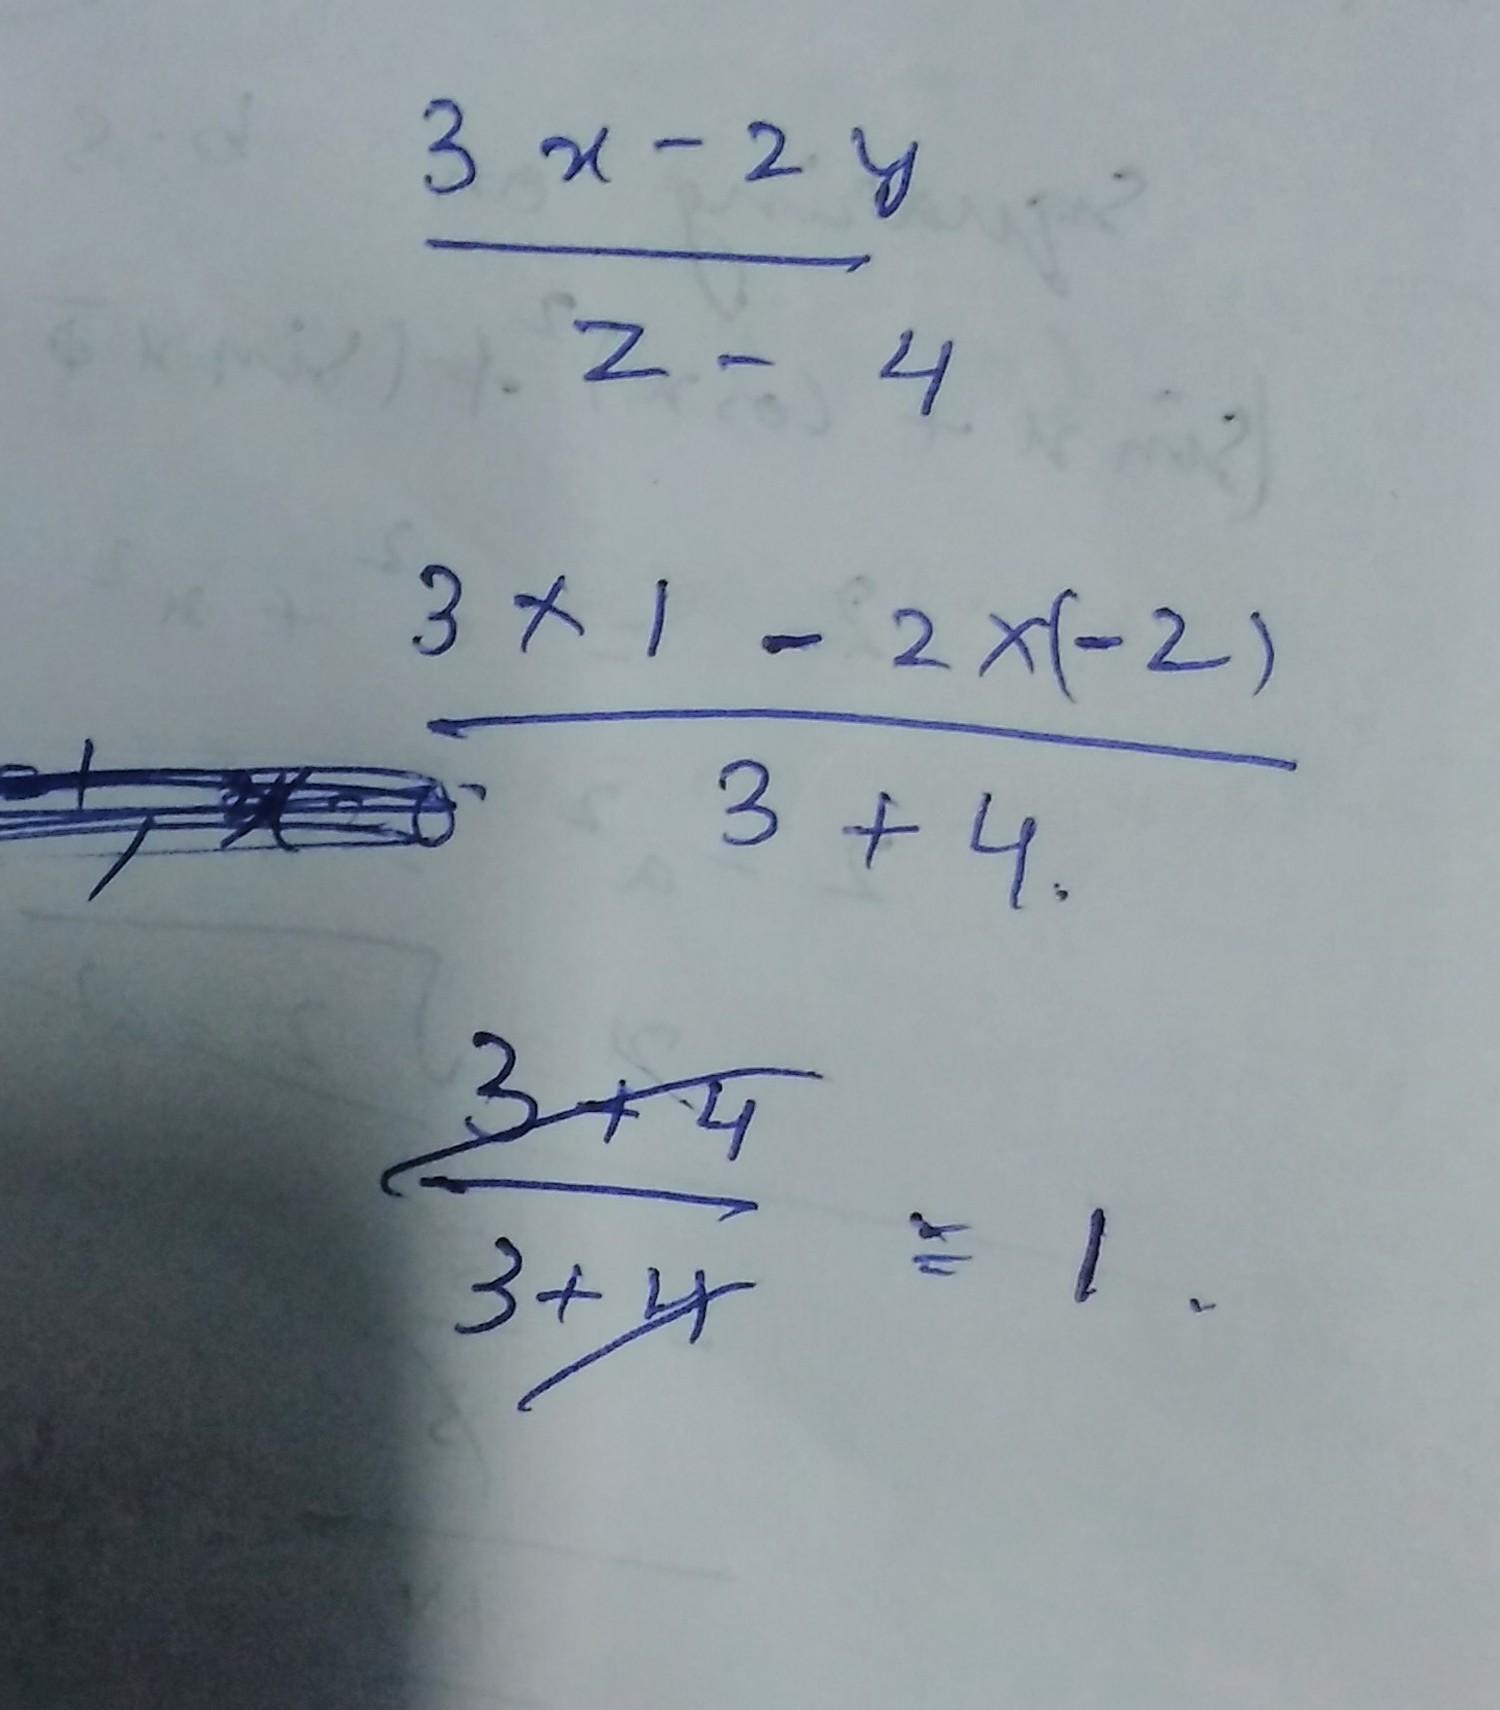 3 x - 2 y
z - 4
3 × 1 - 2 ×(-2)
3 + 4.
3 + 4
3 + 4 = 1.